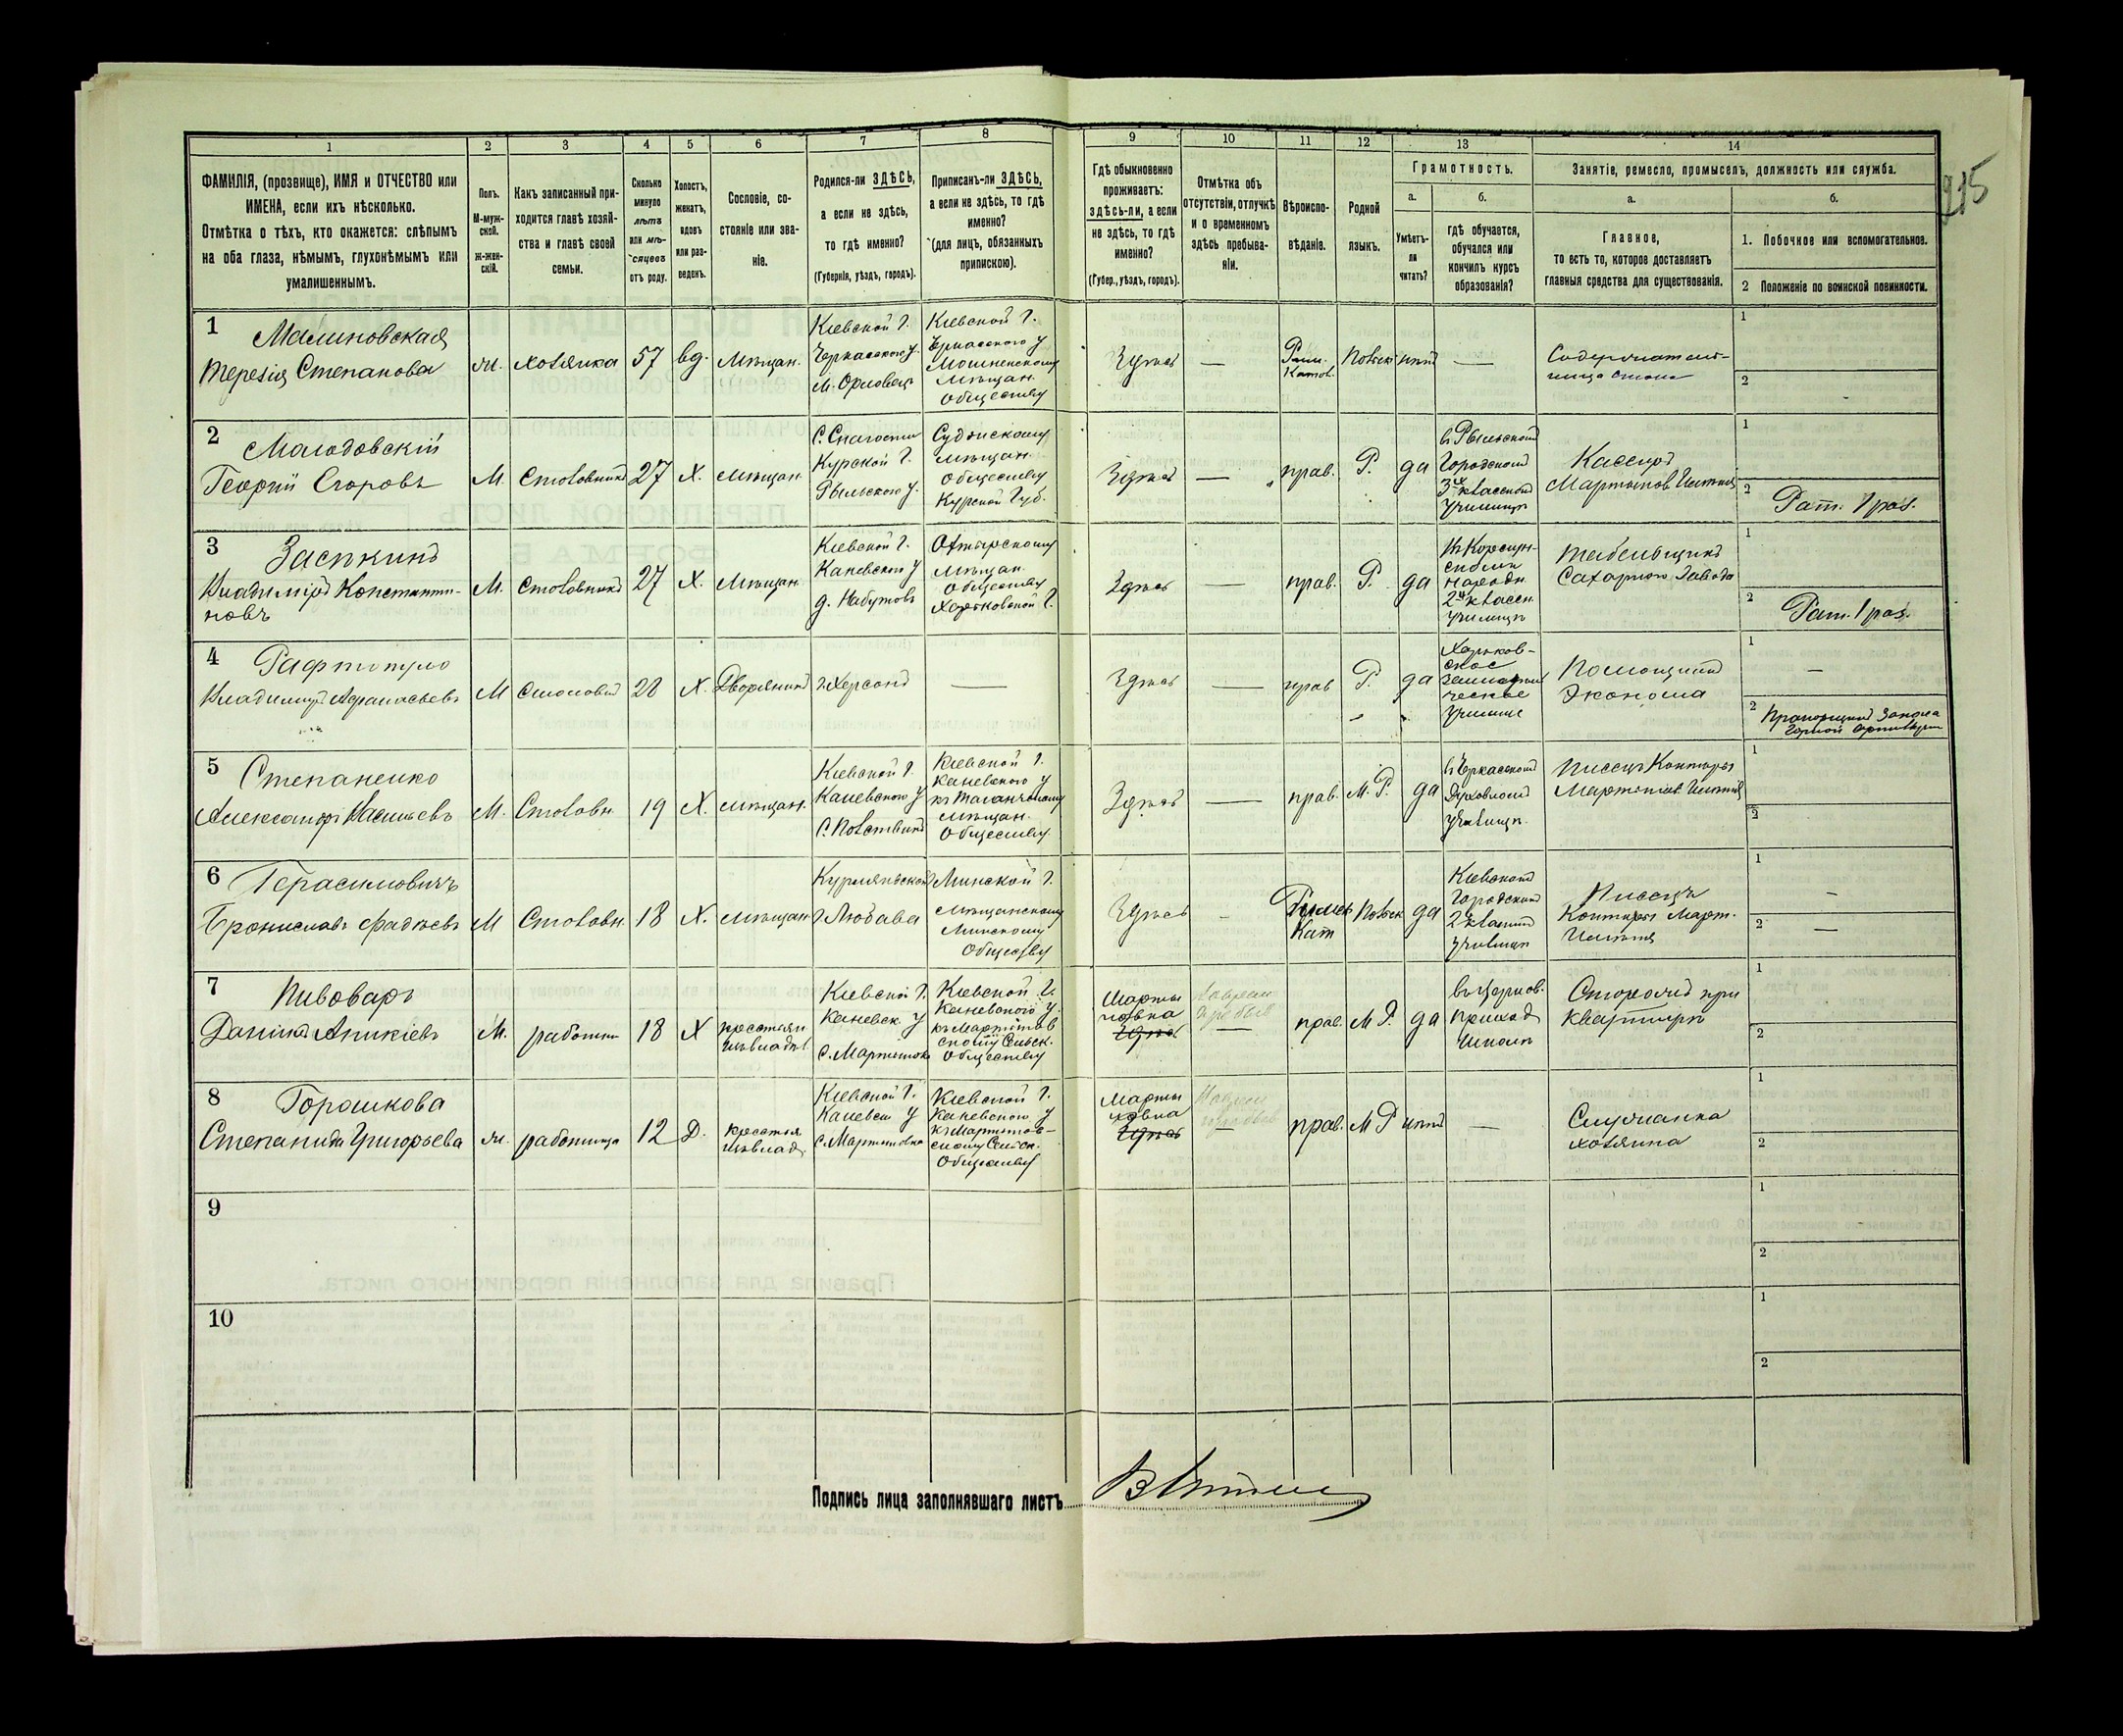 215
1 2 3 4 5 6 7 8 9 10 11 12 13 14
ФАМИЛІЯ, (прозвище), ИМЯ и ОТЧЕСТВО или
ИМЕНА, если ихъ нѣсколько.
Отмѣтка о тѣхъ, кто окажется: слѣпымъ
на оба глаза, нѣмымъ, глухонѣмымъ или
умалишеннымъ.
Полъ.
М-муж-
ской.
ж-жен-
скій.
Какъ записанный при-
ходится главѣ хозяй-
ства и главѣ своей
семьи.
Сколько
минуло
лѣтъ
или мѣ-
сяцевъ
отъ роду.
Холостъ,
женатъ,
вдовъ
или раз-
веденъ.
Сословіе, со-
стояніе или зва-
ніе.
Родился-ли ЗДѢСЬ,
а если не здѣсь,
то гдѣ именно?
(Губернія, уѣздъ, городъ).
Приписанъ-ли ЗДѢСЬ,
а если не здѣсь, то гдѣ
именно?
(для лицъ, обязанныхъ
припискою).
Гдѣ обыкновенно
проживаетъ:
здѣсь-ли, а если
не здѣсь, то гдѣ
именно?
(Губер., уѣздъ, городъ).
Отмѣтка объ
отсутствіи, отлучкѣ
и о временномъ
здѣсь пребыва-
ніи.
Вѣроиспо-
вѣданіе.
Родной
языкъ.
Грамотность.
а.
Умѣетъ-
ли
читать?
б.
гдѣ обучается,
обучался или
кончилъ курсъ
образованія?
Занятіе, ремесло, промыселъ, должность или служба.
а.
Главное,
то есть то, которое доставляетъ
главныя средства для существованія.
б.
1. Побочное или вспомогательное.
2 Положеніе по воинской повинности.
1
Малиновская
Терезія Степанова
ж.
хозяйка
57
вд.
мѣщан.
Кіевской г.
Черкасскаго у.
м. Орловецъ
Кіевской г.
Черкасского у
Мошненскому
мѣщан.
Обществу
Здѣсь
—
Рим.
Катол.
Польск
нѣтъ
—
Содержатель-
ница стола
1
2
2
Молодовскій
Георгій Егоровъ
М.
Столовникъ
27
Х.
мѣщан.
Курской г.
Рыльскаго у.
Суджскому
мѣщан.
Обществу
Курской Губ.
Здѣсь
—
прав.
Р.
да
в Рыльскомъ
Городскомъ
3х классном
училищѣ
Кассиръ
1
2
Рат. 1 раз.
3
Засѣкинъ
Владиміръ Константи-
новъ
М.
Столовникъ
27
Х.
Мѣщан.
Кіевской г.
Каневского у
д. Набутовъ
Ахтырскому
мѣщан.
Обществу
Харьковской г.
Здѣсь
—
прав.
Р.
да
народн
2х классн.
училищѣ
Табельщикъ
Сахарного Завода
1
2
Рат. 1 раз.
4
Владиміръ Афанасьевъ
М
28
Х.
Дворянинъ
г. Херсонъ
—
Здѣсь
—
прав
Р.
да
Харьков-
ское
земледѣль
ческое
училище
Помощникъ
Эконома
1
—
2
Прапорщикъ Запаса
5
Степаненко
Александръ Васильевъ
М.
Столовн.
19
Х.
мѣщан.
Кіевской г.
Каневского у
Кіевской г.
Каневского у
къ Таганчскому
мѣщан.
Обществу
Здѣсь
—
прав.
М. Р.
да
в Черкасскомъ
Духовномъ
училищѣ.
Писецъ Конторы
1
2
6
Герасимовичъ
Брониславъ Фадѣевъ
М
Столовн.
18
Х.
мѣщан
Курляндской
г Любава
Минской г.
мѣщанскому
Минскому
Обществу
Здѣсь
—
Римск
Кат
Польск
да
Кіевскомъ
Городскомъ
училищѣ
Писецъ
Конторы Март.
1
—
2
—
7
Пивоваръ
Даніилъ Аникіевъ
М.
работник
18
Х
крестьян
Кіевской г.
Каневск. у
с. Мартыновк
Кіевской г.
Каневского у.
къ Мартынов
скому Сельск.
Обществу
Марты
новка
Здѣсь
—
прав.
М Р.
да
въ Церков.
приход
школѣ
Сторожъ при
квартирѣ
1
2
8
Горошкова
Степанида Григорьева
ж.
работница
12
Д.
Кіевской г.
Каневск у
с. Мартыновка
Кіевской г.
Каневского у
къ Мартынов-
скому Сельск.
Обществу
Марты
новка
Здѣсь
прав.
М Р
нѣтъ
—
Служанка
хозяина
1
2
9
1
2
10
1
2
Подпись лица заполнявшаго листъ